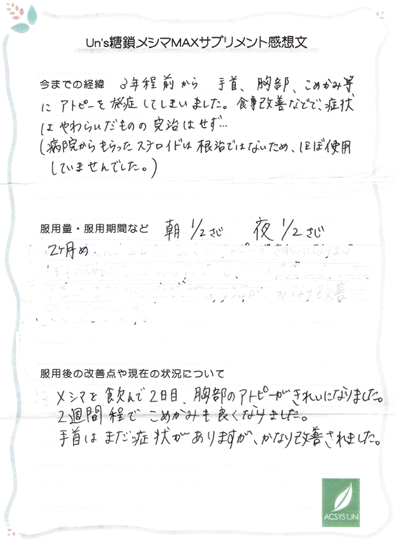 Un's糖鎖メシマMAXサプリメント感想文
今までの経緯 3年程前から 手首、胸部、こめかみ等
にアトピーを発症してしまいました。食事改善などで症状
はやわらいだものの完治はせず…
(病院からもらったステロイドは根治ではないため、ほぼ使用
していませんでした。)
服用量・服用期間など 朝 1/2さじ 夜 1/2さじ
2ヶ月め
服用後の改善点や現在の状況について
メシマを飲んで2日目、胸部のアトピーがきれいになりました。
2週間程でこめかみも良くなりました。
手首はまだ症状がありますが、かなり改善されました。
ACSYS UN